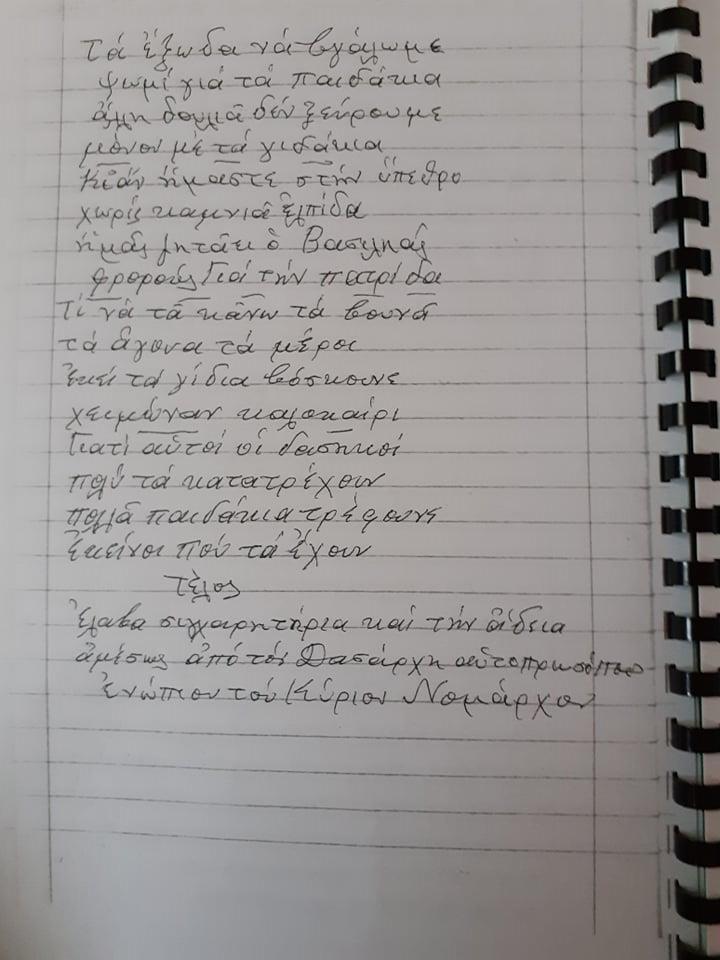 Τά ἔξωδα νά βγάλωμε
ψωμί γιά τά παιδάκια
ἄλλη δουλιᾶ δέν ξεύρουμε
μόνον μέ τά γιδάκια
Κι ἄν ἤμαστε στήν ὕπεθρο
χωρίς καμνιᾶ ἐλπίδα
ἡμᾶς ὁ Βασιληᾶς
φρορούς Γιά τήν πατρίδα
Τί νά τᾶ κάνω τά βουνᾶ
τά ἄγονα τά μέροι
Ἐκεῖ τά γίδια βόσκουνε
χειμῶναν καλοκαίρι
Γιατί αὐτοί οἱ δασηκοί
πολύ τά κατατρέχουν
πολλᾶ παιδάκια τρέφουνε
Ἐκείνοι πού τά ἔχουν
Τέλος
Ἔλαβα σιγχαρητήρια καί τήν ἄδεια
ἀμέσως ἀπό τόν Δασάρχη αὐτοπρωσόπως
Ἐνώπιον τοῦ Κύριου Νομάρχου